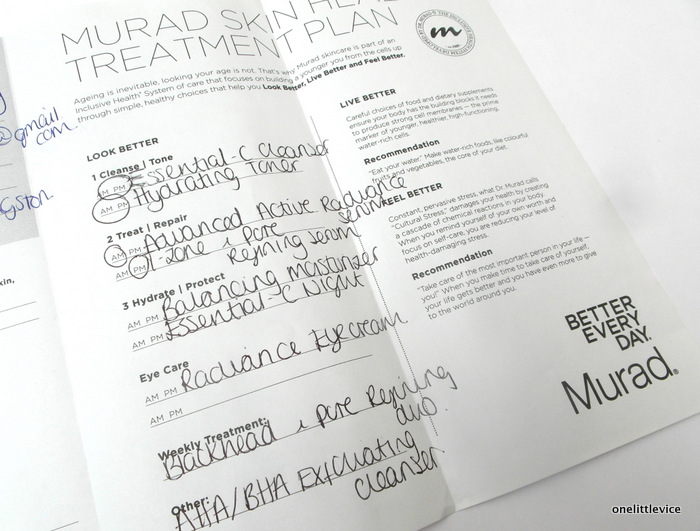 @gmail
com.
gston.
kin,
MURAD SKIN HEAL
TREATMENT PLAN
Ageing is inevitable, looking your age is not. That's why Murad skincare is part of an
Inclusive Health® System of care that focuses on building a younger you from the cells up
through simple, healthy choices that help you Look Better, Live Better and Feel Better.
LOOK BETTER
1 Cleanse | Tone
AM PM Essential-C Cleanser
AM PM Hydrating Toner
2 Treat | Repair
AM PM Advanced Active Radiance
Serum
AM PM T-zone & Pore
Refining Serum
3 Hydrate | Protect
AM PM Balancing moisturizer
AM PM Essential-C Night
Eye Care
AM PM Radiance Eyecream
AM PM
Weekly Treatment:
Blackhead & Pore Refining
duo.
Other:
AHA/BHA Exfoliating
Cleanser
m
LIVE BETTER
Careful choices of food and dietary supplements
ensure your body has the building blocks it needs
to produce strong cell membranes — the prime
marker of younger, healthier, high-functioning,
water-rich cells.
Recommendation
"Eat your water." Make water-rich foods, like colourful
fruits and vegetables, the core of your diet.
FEEL BETTER
Constant, pervasive stress, what Dr Murad calls
"Cultural Stress," damages your health by creating
a cascade of chemical reactions in your body.
When you remind yourself of your own worth and
focus on self-care, you are reducing your level of
health-damaging stress.
Recommendation
"Take care of the most important person in your life —
you!" When you make time to take care of yourself,
your life gets better and you have even more to give
to the world around you.
BETTER
EVERY
DAY.
Murad®
onelittlevice